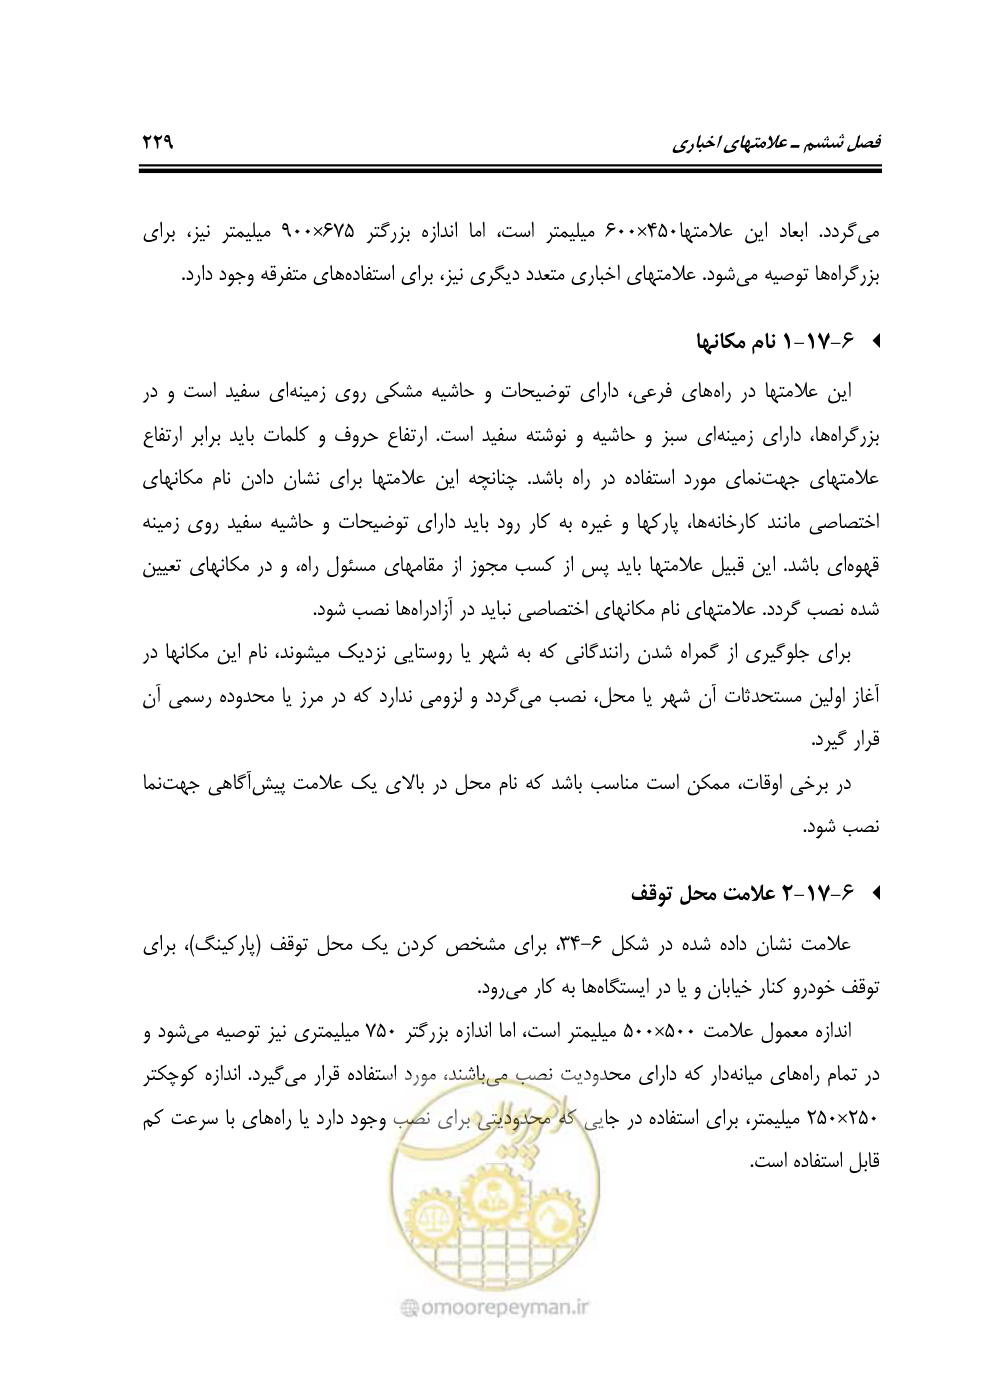 فصل ششم ـ علامتهای اخباری ۲۲۹
می‌گردد. ابعاد این علامتها۴۵۰×۶۰۰ میلیمتر است، اما اندازه بزرگتر ۶۷۵×۹۰۰ میلیمتر نیز، برای
بزرگراه‌ها توصیه می‌شود. علامتهای اخباری متعدد دیگری نیز، برای استفاده‌های متفرقه وجود دارد.
۶-۱۷-۱ نام مکانها
این علامتها در راه‌های فرعی، دارای توضیحات و حاشیه مشکی روی زمینه‌ای سفید است و در
بزرگراه‌ها، دارای زمینه‌ای سبز و حاشیه و نوشته سفید است. ارتفاع حروف و کلمات باید برابر ارتفاع
علامتهای جهت‌نمای مورد استفاده در راه باشد. چنانچه این علامتها برای نشان دادن نام مکانهای
اختصاصی مانند کارخانه‌ها، پارکها و غیره به کار رود باید دارای توضیحات و حاشیه سفید روی زمینه
قهوه‌ای باشد. این قبیل علامتها باید پس از کسب مجوز از مقامهای مسئول راه، و در مکانهای تعیین
شده نصب گردد. علامتهای نام مکانهای اختصاصی نباید در آزادراه‌ها نصب شود.
برای جلوگیری از گمراه شدن رانندگانی که به شهر یا روستایی نزدیک میشوند، نام این مکانها در
آغاز اولین مستحدثات آن شهر یا محل، نصب می‌گردد و لزومی ندارد که در مرز یا محدوده رسمی آن
قرار گیرد.
در برخی اوقات، ممکن است مناسب باشد که نام محل در بالای یک علامت پیش‌آگاهی جهت‌نما
نصب شود.
۶-۱۷-۲ علامت محل توقف
علامت نشان داده شده در شکل ۶-۳۴، برای مشخص کردن یک محل توقف (پارکینگ)، برای
توقف خودرو کنار خیابان و یا در ایستگاه‌ها به کار می‌رود.
اندازه معمول علامت ۵۰۰×۵۰۰ میلیمتر است، اما اندازه بزرگتر ۷۵۰ میلیمتری نیز توصیه می‌شود و
در تمام راه‌های میانه‌دار که دارای محدودیت نصب می‌باشند، مورد استفاده قرار می‌گیرد. اندازه کوچکتر
۲۵۰×۲۵۰ میلیمتر، برای استفاده در جایی که محدودیتی برای نصب وجود دارد یا راه‌های با سرعت کم
قابل استفاده است.
امور پیمان
@omoorepeyman.ir